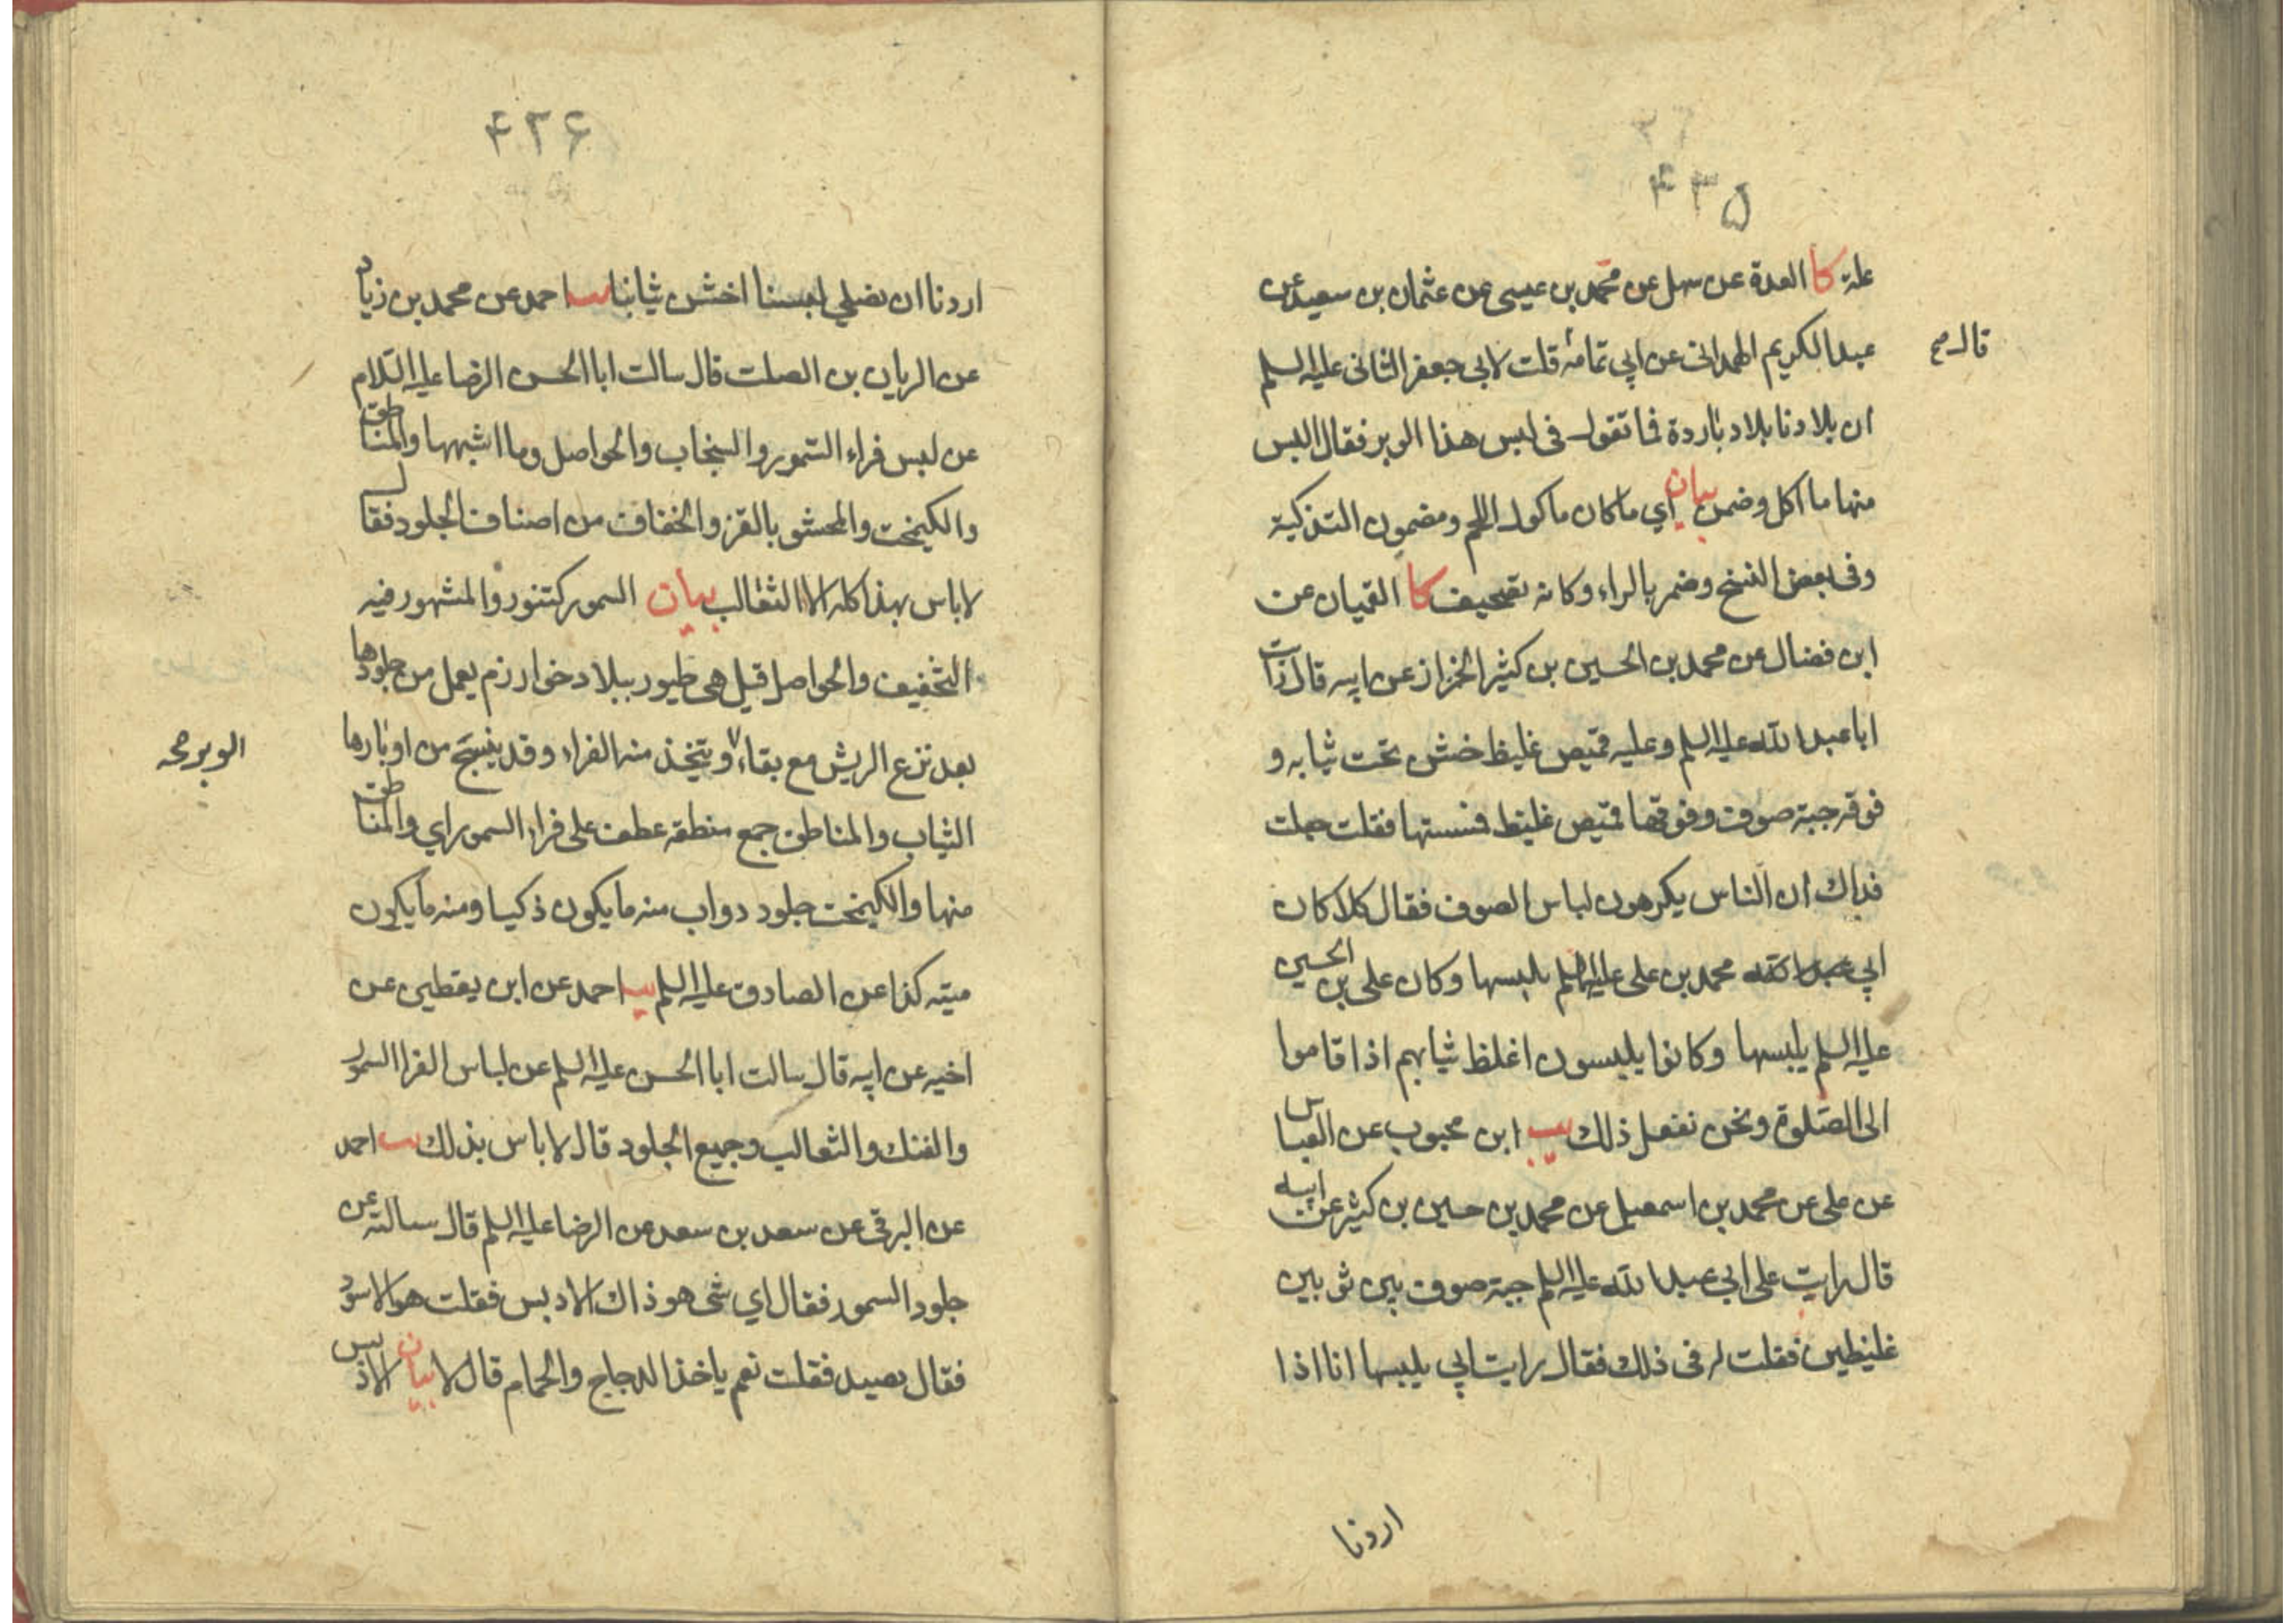 ۴۳۵
علة كا العدة عن سهل عن محمد بن عيسى عن عثمان بن سعيد عن
عبدالكريم الهمدانى عن ابي تمامة قلت لابى جعفر الثانى عليه السلم
قال صح
ان بلادنا بلاد باردة فما تقول فى لبس هذا الوبر فقال البس
منها ما اكل وضمن بيان اي ما كان ماكول اللحم ومضمون التذكية
وفى بعض النسخ وضمر بالراء وكانه تصحيف كا القميان عن
ابن فضال عن محمد بن الحسين بن كثير الخزاز عن ابيه قال رايت
ابا عبد الله عليه السلم وعليه قميص غليظ خشن تحت ثيابه و
فوقه جبة صوف وفوقها قميص غليظ فمسستها فقلت جعلت
فداك ان الناس يكرهون لباس الصوف فقال كلا كان
ابي محمد بن على عليهما السلم يلبسها وكان على بن الحسين
عليه السلم يلبسها وكانوا يلبسون اغلظ ثيابهم اذا قاموا
الى الصلوة ونحن نفعل ذلك يب ابن محبوب عن العباس
عن على عن محمد بن اسمعيل عن محمد بن حسين بن كثير عن ابيه
قال رايت على ابي عبد الله عليه السلم جبة صوف بين ثوبين
غليظين فقلت له فى ذلك فقال رايت ابي يلبسها انا اذا
اردنا
۴۳۶
اردنا ان نصلي لبسنا اخشن ثيابنا يب احمد عن محمد بن زياد
عن الريان بن الصلت قال سالت ابا الحسن الرضا عليه السلام
عن لبس فراء السمور والسنجاب والحواصل وما اشبهها والمناطق
والكيمخت والمحشو بالقز والخفاف من اصناف الجلود فقال
لا باس بهذا كله الا الثعالب بيان السمور كتنور والمشهور فيه
التخفيف والحواصل قيل هى طيور ببلاد خوارزم يعمل من جلودها
بعد نزع الريش مع بقاء ويتخذ منه الفراء وقد ينسج من اوبارها
الوبر صح
الثياب والمناطق جمع منطقة عطف على فراء السمور اي والمناطق
منها والكيمخت جلود دواب منه ما يكون ذكيا ومنه ما يكون
ميتة كذا عن الصادق عليه السلم يب احمد عن ابن يقطين عن
اخيه عن ابيه قال سالت ابا الحسن عليه السلم عن لباس الفراء السمور
والفنك والثعالب وجميع الجلود قال لا باس بذلك يب احمد
عن البرقى عن سعد بن سعد عن الرضا عليه السلم قال سالته عن
جلود السمور فقال اي شى هو ذاك الادبس فقلت هو الاسود
فقال يصيد فقلت نعم ياخذ الدجاج والحمام قال لا بيان الادبس